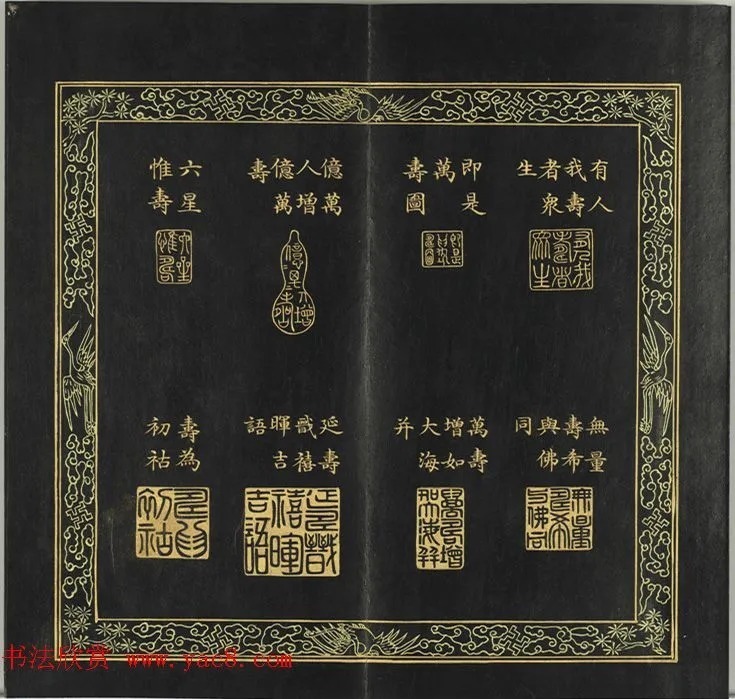 有人
我壽
者衆
生
即是
萬
壽圖
億萬
人增
億萬
壽
六星
惟壽
無量
壽希
與佛
同
萬壽
增如
大海
并
延壽
禧
暉吉
語
壽為
初祜
书法欣赏 www.yac8.com